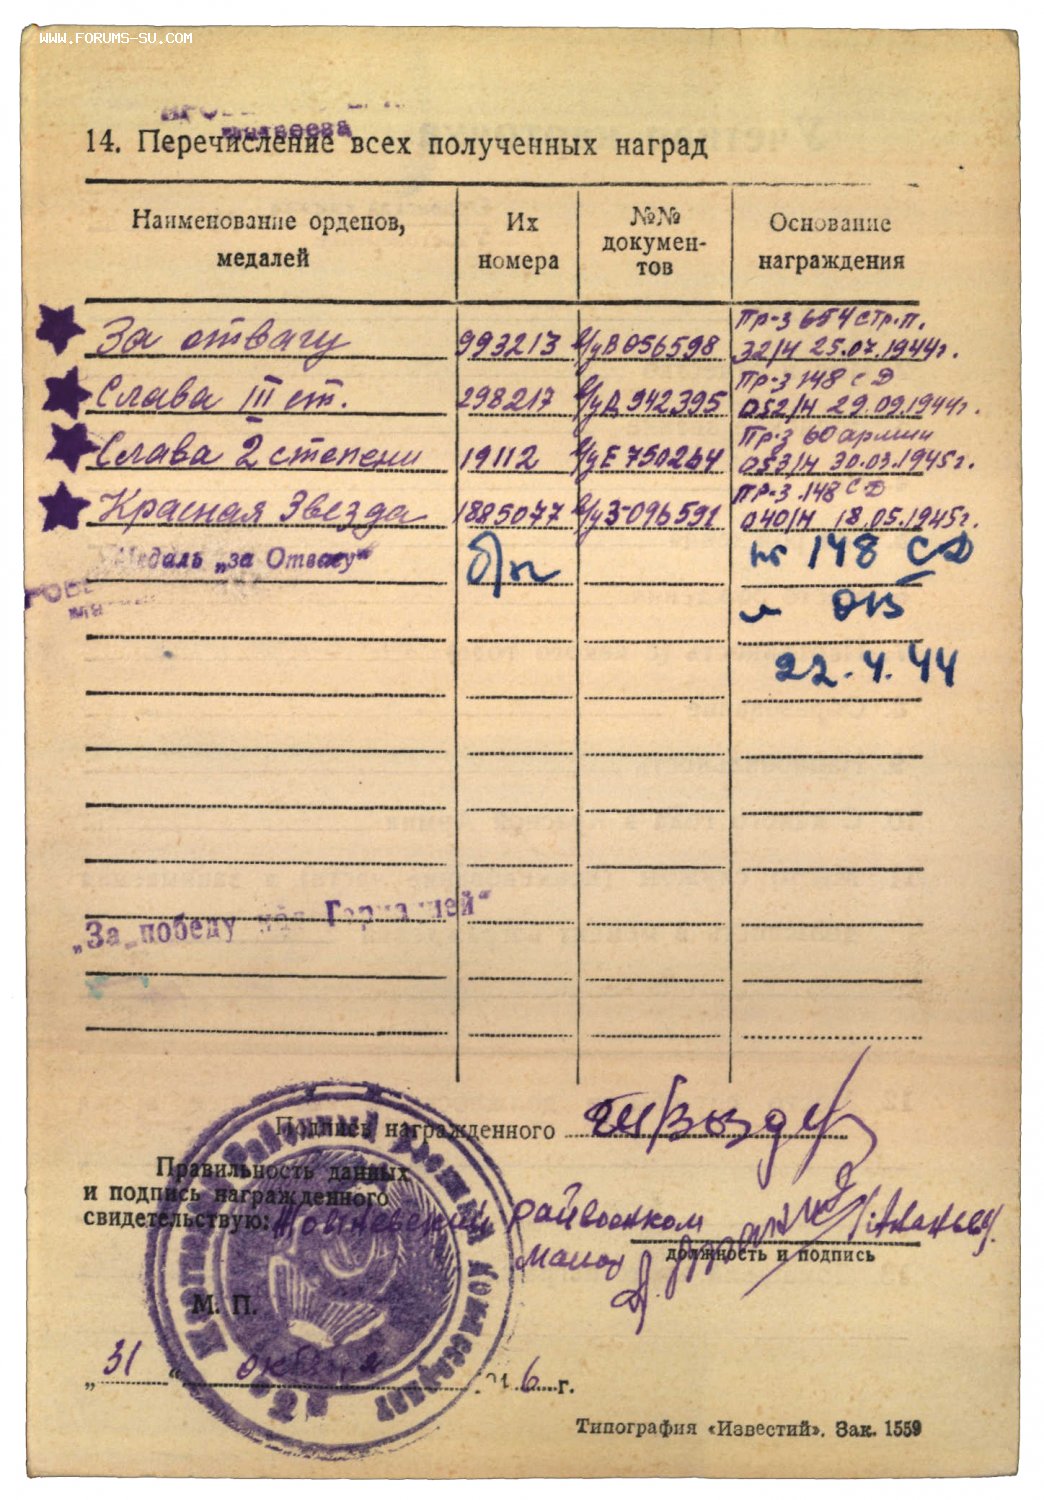 WWW.FORUMS-SU.COM
14. Перечисление всех полученных наград
Наименование орденов, медалей
Их номера
№№ докумен-тов
Основание награждения
За отвагу 993213 В 056598 Пр-з 654 стр.п. 32/н 25.07.1944г.
Слава III ст. 298217 Д 942395 Пр-з 148 СД 052/н 29.09.1944г.
Слава 2 степени 19112 Е 750264 Пр-з 60 армии 053/н 30.03.1945г.
Красная Звезда 1885077 З-096591 Пр-з 148 СД 040/н 18.05.1945г.
Медаль „за Отвагу“ б/н 148 СД
22.4.44
„За победу над Германией“
Подпись награжденного
Правильность данных
и подпись награжденного
свидетельствую: райвоенком
должность и подпись
М. П.
„31“ октября 6 г.
Типография «Известий». Зак. 1559